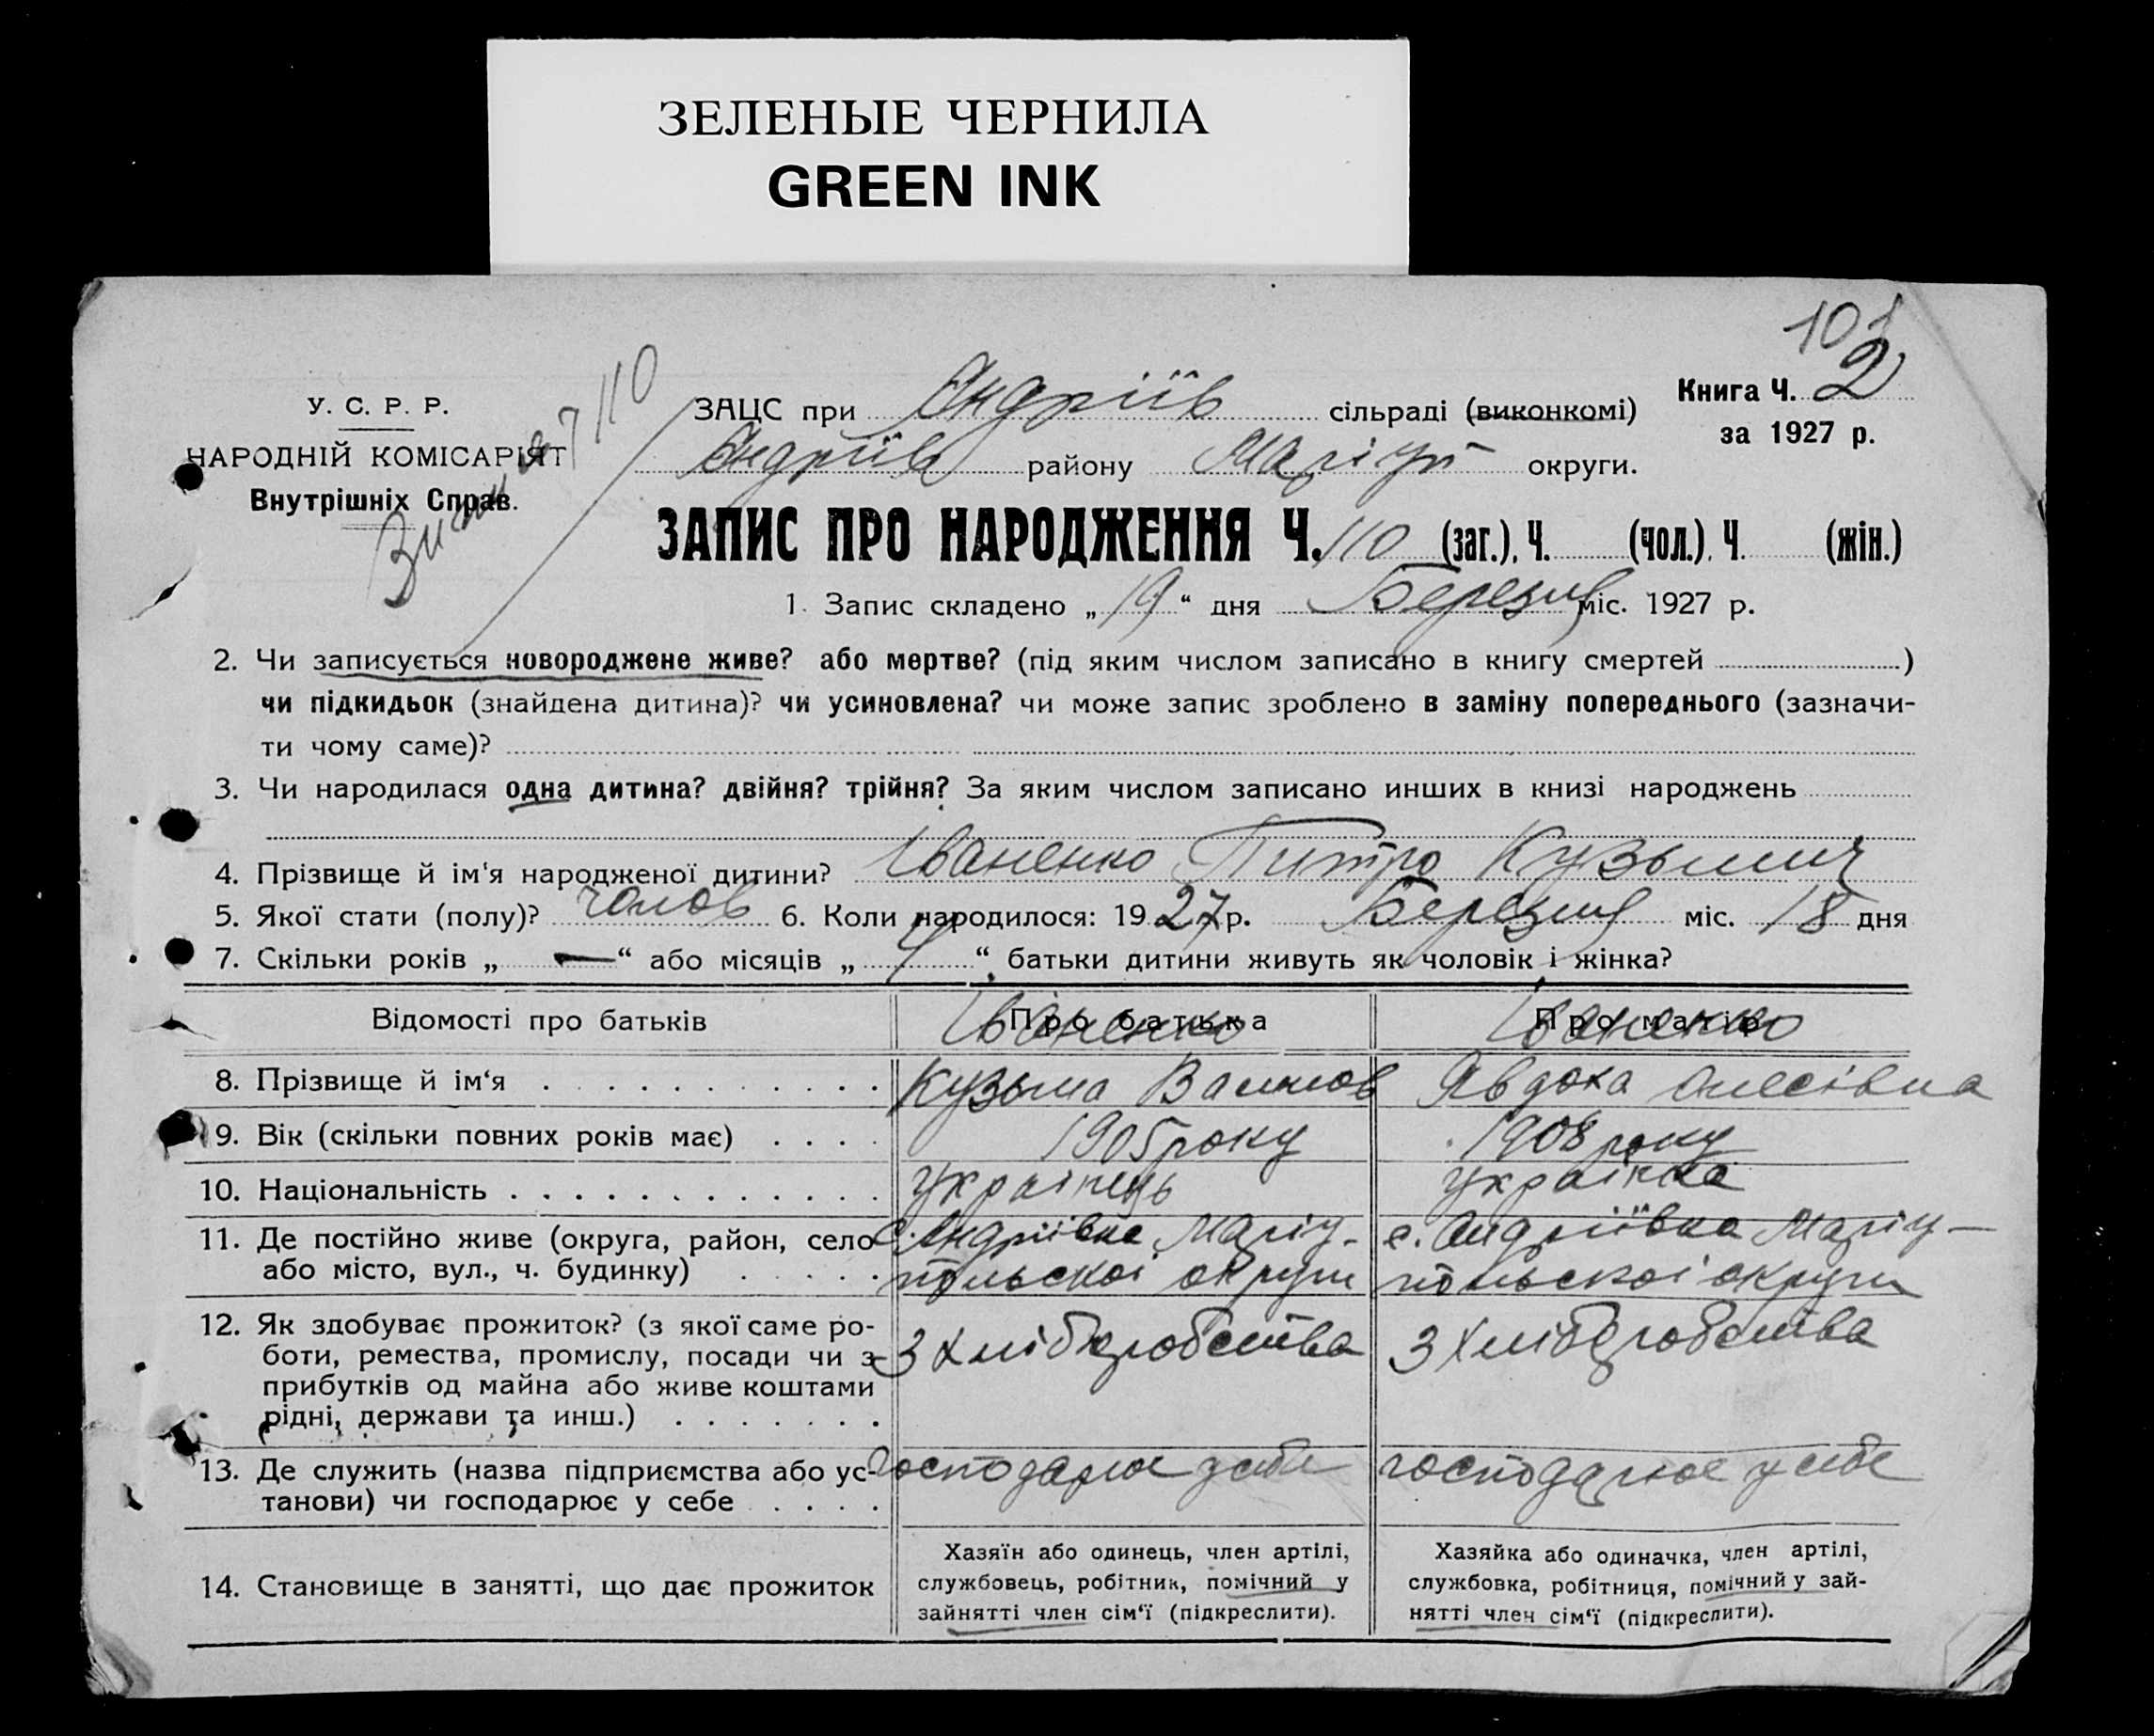 ЗЕЛЕНЫЕ ЧЕРНИЛА
GREEN INK
101
У. С. Р. Р.
НАРОДНІЙ КОМІСАРІЯТ
Внутрішніх Справ.
110
ЗАЦС при Андріїв сільраді (виконкомі)
Книга Ч. 2
за 1927 р.
Андріїв району Маріуп округи.
ЗАПИС ПРО НАРОДЖЕННЯ Ч. 110 (заг.), Ч. (чол.), Ч. (жін.)
1. Запис складено „19“ дня Березня міс. 1927 р.
2. Чи записується новороджене живе? або мертве? (під яким числом записано в книгу смертей )
чи підкидьок (знайдена дитина)? чи усиновлена? чи може запис зроблено в заміну попереднього (зазначи-
ти чому саме)?
3. Чи народилася одна дитина? двійня? трійня? За яким числом записано инших в книзі народжень
4. Прізвище й ім‘я народженої дитини? Іваненко Питро Кузьмич
5. Якої стати (полу)? чолов 6. Коли народилося: 1927 р. Березня міс. 18 дня
7. Скільки років „ — “ або місяців „ 4 “ батьки дитини живуть як чоловік і жінка?
Відомості про батьків Про батька Іваненко Про матір Іваненко
8. Прізвище й ім‘я Кузьма Явдоха
9. Вік (скільки повних років має) 1905 року 1908 року
10. Національність українець українка
11. Де постійно живе (округа, район, село с. Андріївка Маріу- с. Андріївка Маріу-
або місто, вул., ч. будинку) польскоі округи польскоі округи
12. Як здобуває прожиток? (з якої саме ро-
боти, ремества, промислу, посади чи з З хліборобства З хліборобства
прибутків од майна або живе коштами
рідні, держави та инш.)
13. Де служить (назва підприємства або ус- господарює у себе господарює у себе
танови) чи господарює у себе
14. Становище в занятті, що дає прожиток
Хазяїн або одинець, член артілі,
службовець, робітник, помічний у
зайнятті член сім‘ї (підкреслити).
Хазяйка або одиначка, член артілі,
службовка, робітниця, помічний у зай-
нятті член сім‘ї (підкреслити).